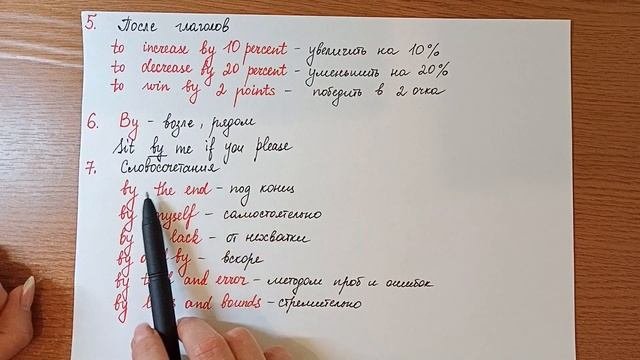 5. После глаголов
to increase by 10 percent - увеличить на 10%
to decrease by 20 percent - уменьшить на 20%
to win by 2 points - победить в 2 очка
6. By - возле, рядом
Sit by me if you please
7. Словосочетания
by the end - под конец
by myself - самостоятельно
by lack - от нехватки
by by - вскоре
by and error - методом проб и ошибок
by and bounds - стремительно